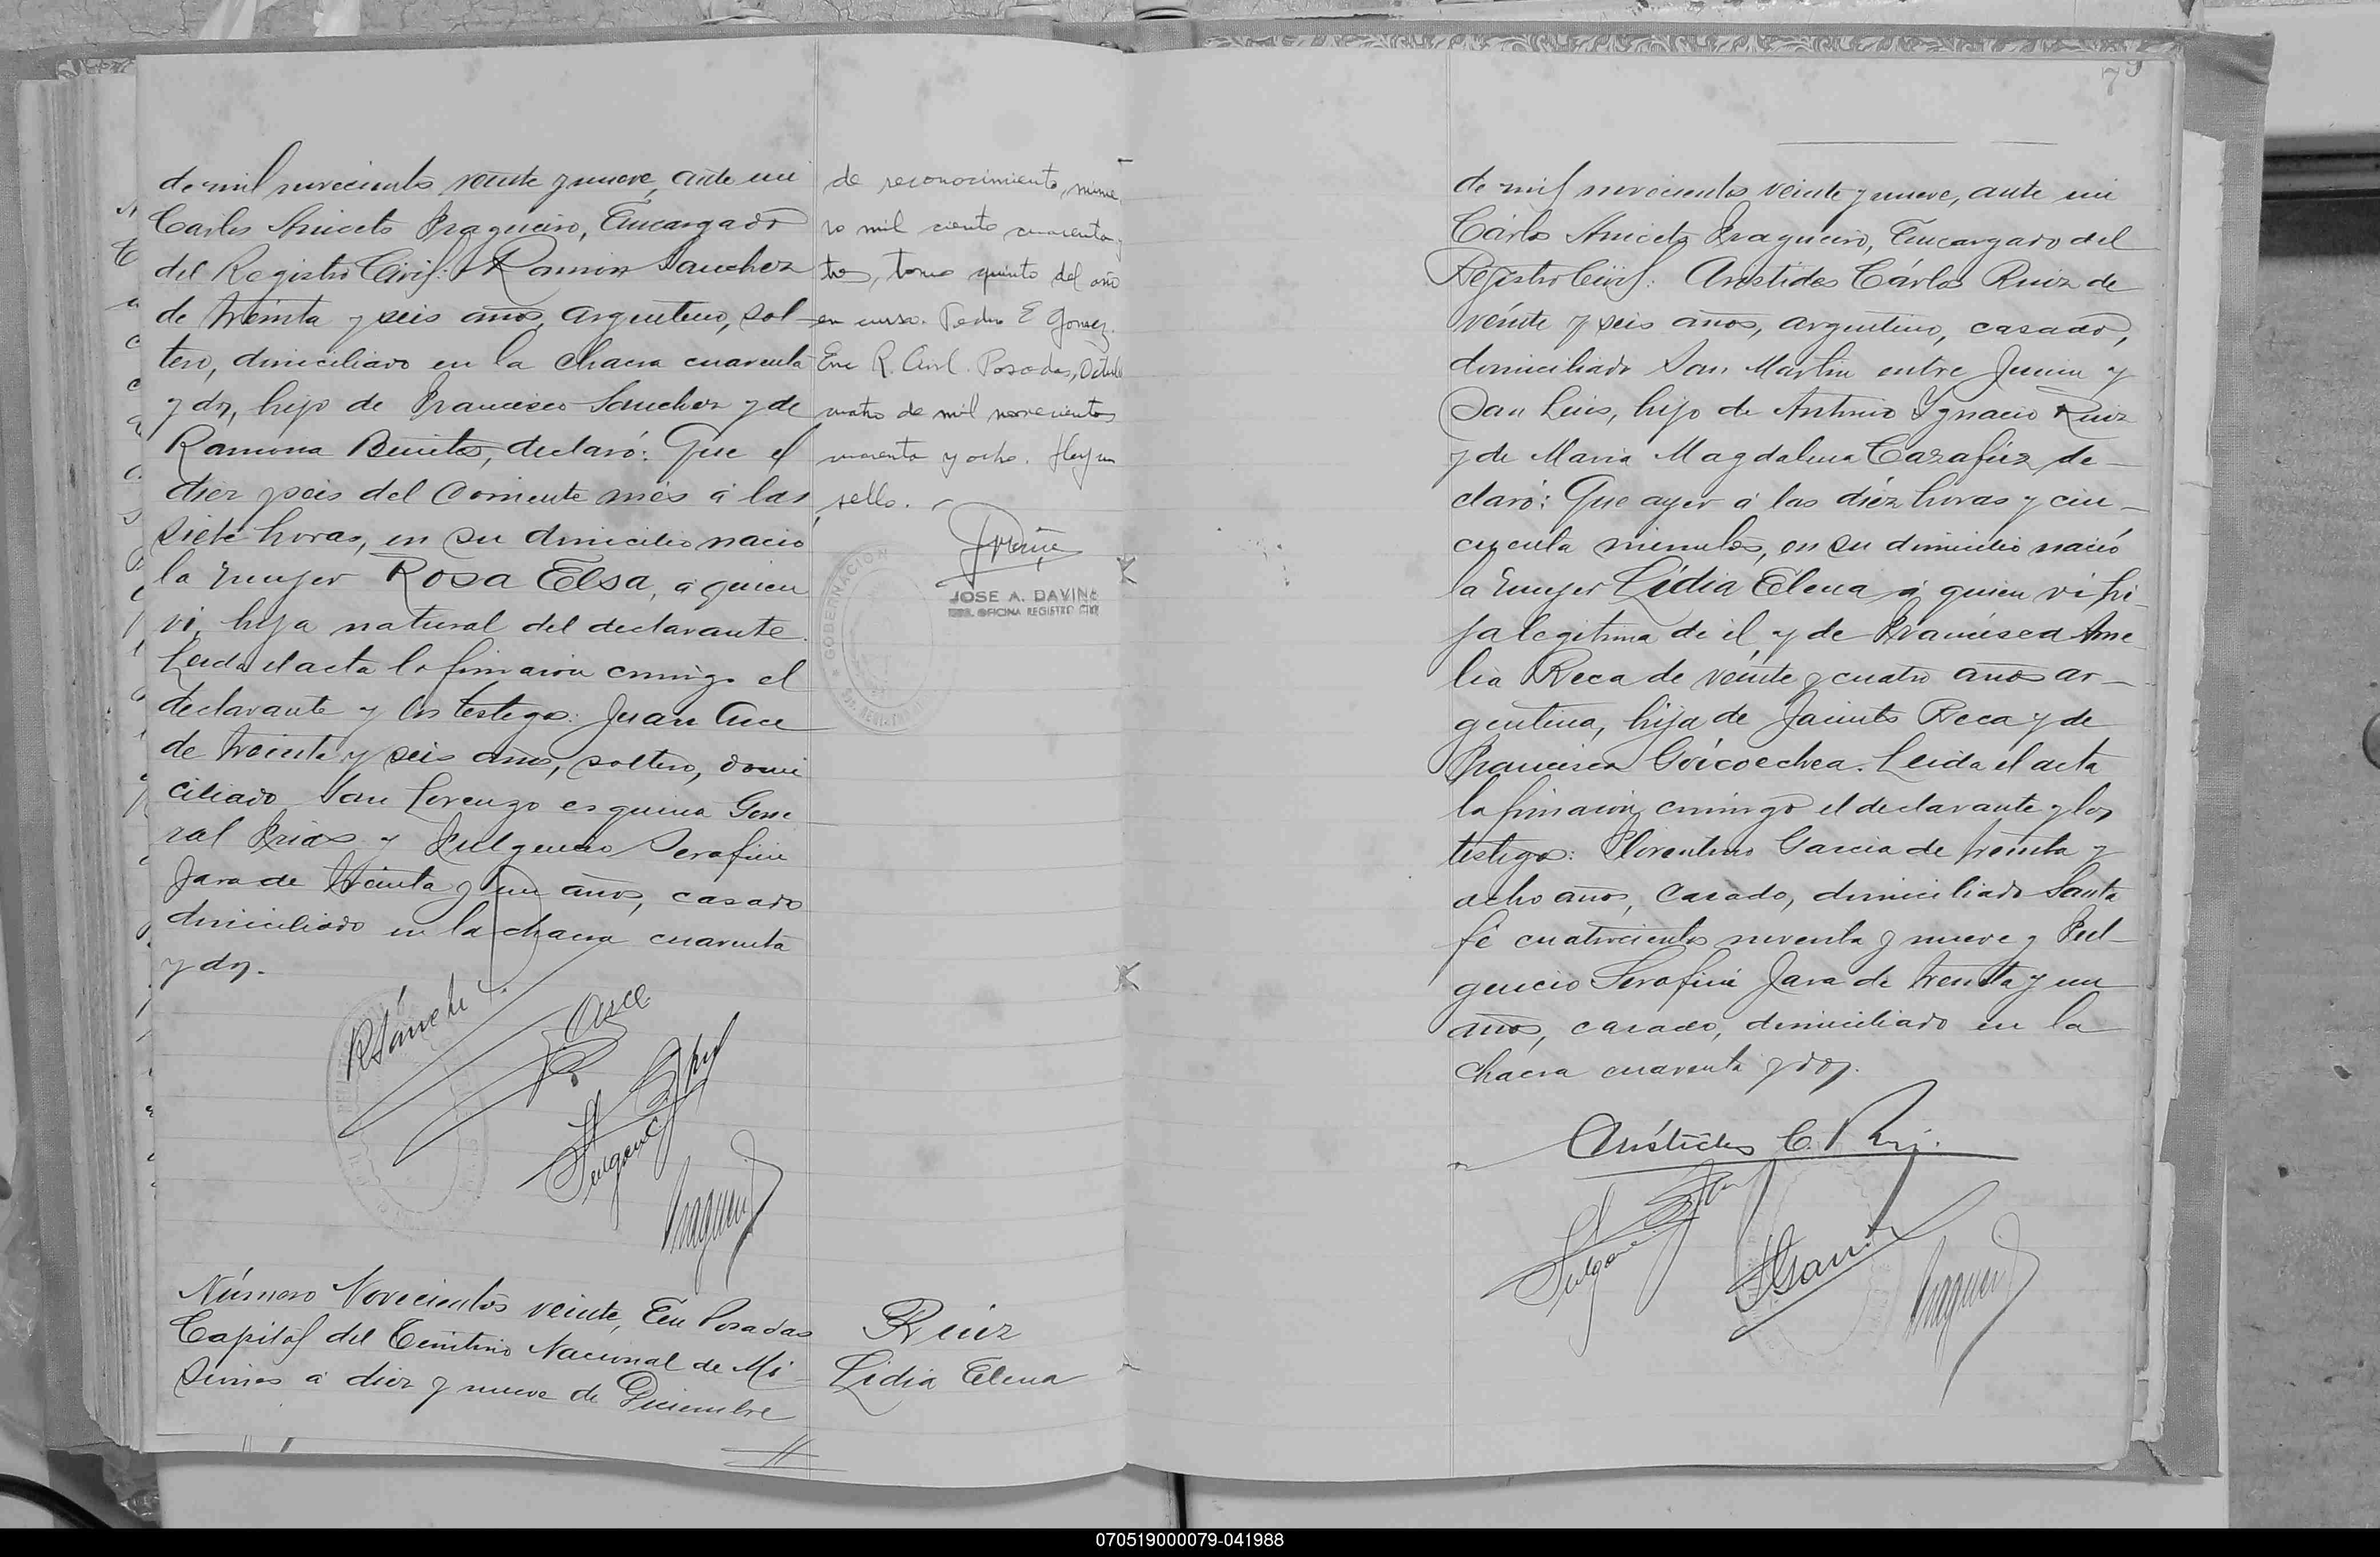 de mil novecientos veinte y nueve, ante mi
Carlos Aniceto Fragueiro, Encargado
del Registro Civil: Ramon Sanchez
de treinta y seis años, argentino, sol-
tero, domiciliado en la chacra cuarenta
y dos, hijo de Francisco Sanchez y de
Ramona Benitez, declaró: Que el
diez y seis del corriente més á las
siete horas, en su domicilio nació
la mujer Rosa Elsa, á quien
vi, hija natural del declarante.
Leida el acta la firmaron conmigo el
declarante y los testigos: Juan Arce
de treinta y seis años, soltero, domi
ciliado San Lorenzo esquina Gene
ral Frias y Fulgencio Serafin
Jara de treinta y un años, casado
domiciliado en la chacra cuarenta
y dos.
R Sánchez
J. Arce
Fulgencio S. Jara
Fragueiro
Número Novecientos veinte, En Posadas
Capital del Territorio Nacional de Mi-
siones á diez y nueve de Diciembre
de reconocimiento, núme
ro mil ciento cuarenta y
tres, tomo quinto del año
en curso. Pedro E Gomez.
Enc R. Civil. Posadas, Octubre
cuatro de mil novecientos
cuarenta y ocho. Hay un
sello.
JOSE A. DAVIÑA
OFICINA REGISTRO CIVIL
GOBERNACION
Ruiz
Lidia Elena
79
de mil novecientos veinte y nueve, ante mi
Cárlos Aniceto Fragueiro, Encargado del
Registro Civil: Aristides Cárlos Ruiz de
veinte y seis años, argentino, casado,
domiciliado San Martin entre Junin y
San Luis, hijo de Antonio Ygnacio Ruiz
y de Maria Magdalena Cazafúz de-
claró: Que ayer á las diéz horas y cin-
cuenta minutos, en su domicilio nació
la mujer Lidia Elena á quien vi hi-
ja legitima de él, y de Francisca Ame
lia Reca de veinte y cuatro años ar-
gentina, hija de Jacinto Reca y de
Francisca Goicoechea. Leida el acta
la firmaron conmigo el declarante y los
testigos: Florentino Garcia de treinta y
ocho años, casado, domiciliado Santa
fé cuatrocientos noventa y nueve y Ful-
gencio Serafin Jara de treinta y un
años, casado, domiciliado en la
chacra cuarenta y dos.
Aristides C. Ruiz.
Fulgencio S. Jara
F Garcia
Fragueiro
070519000079-041988